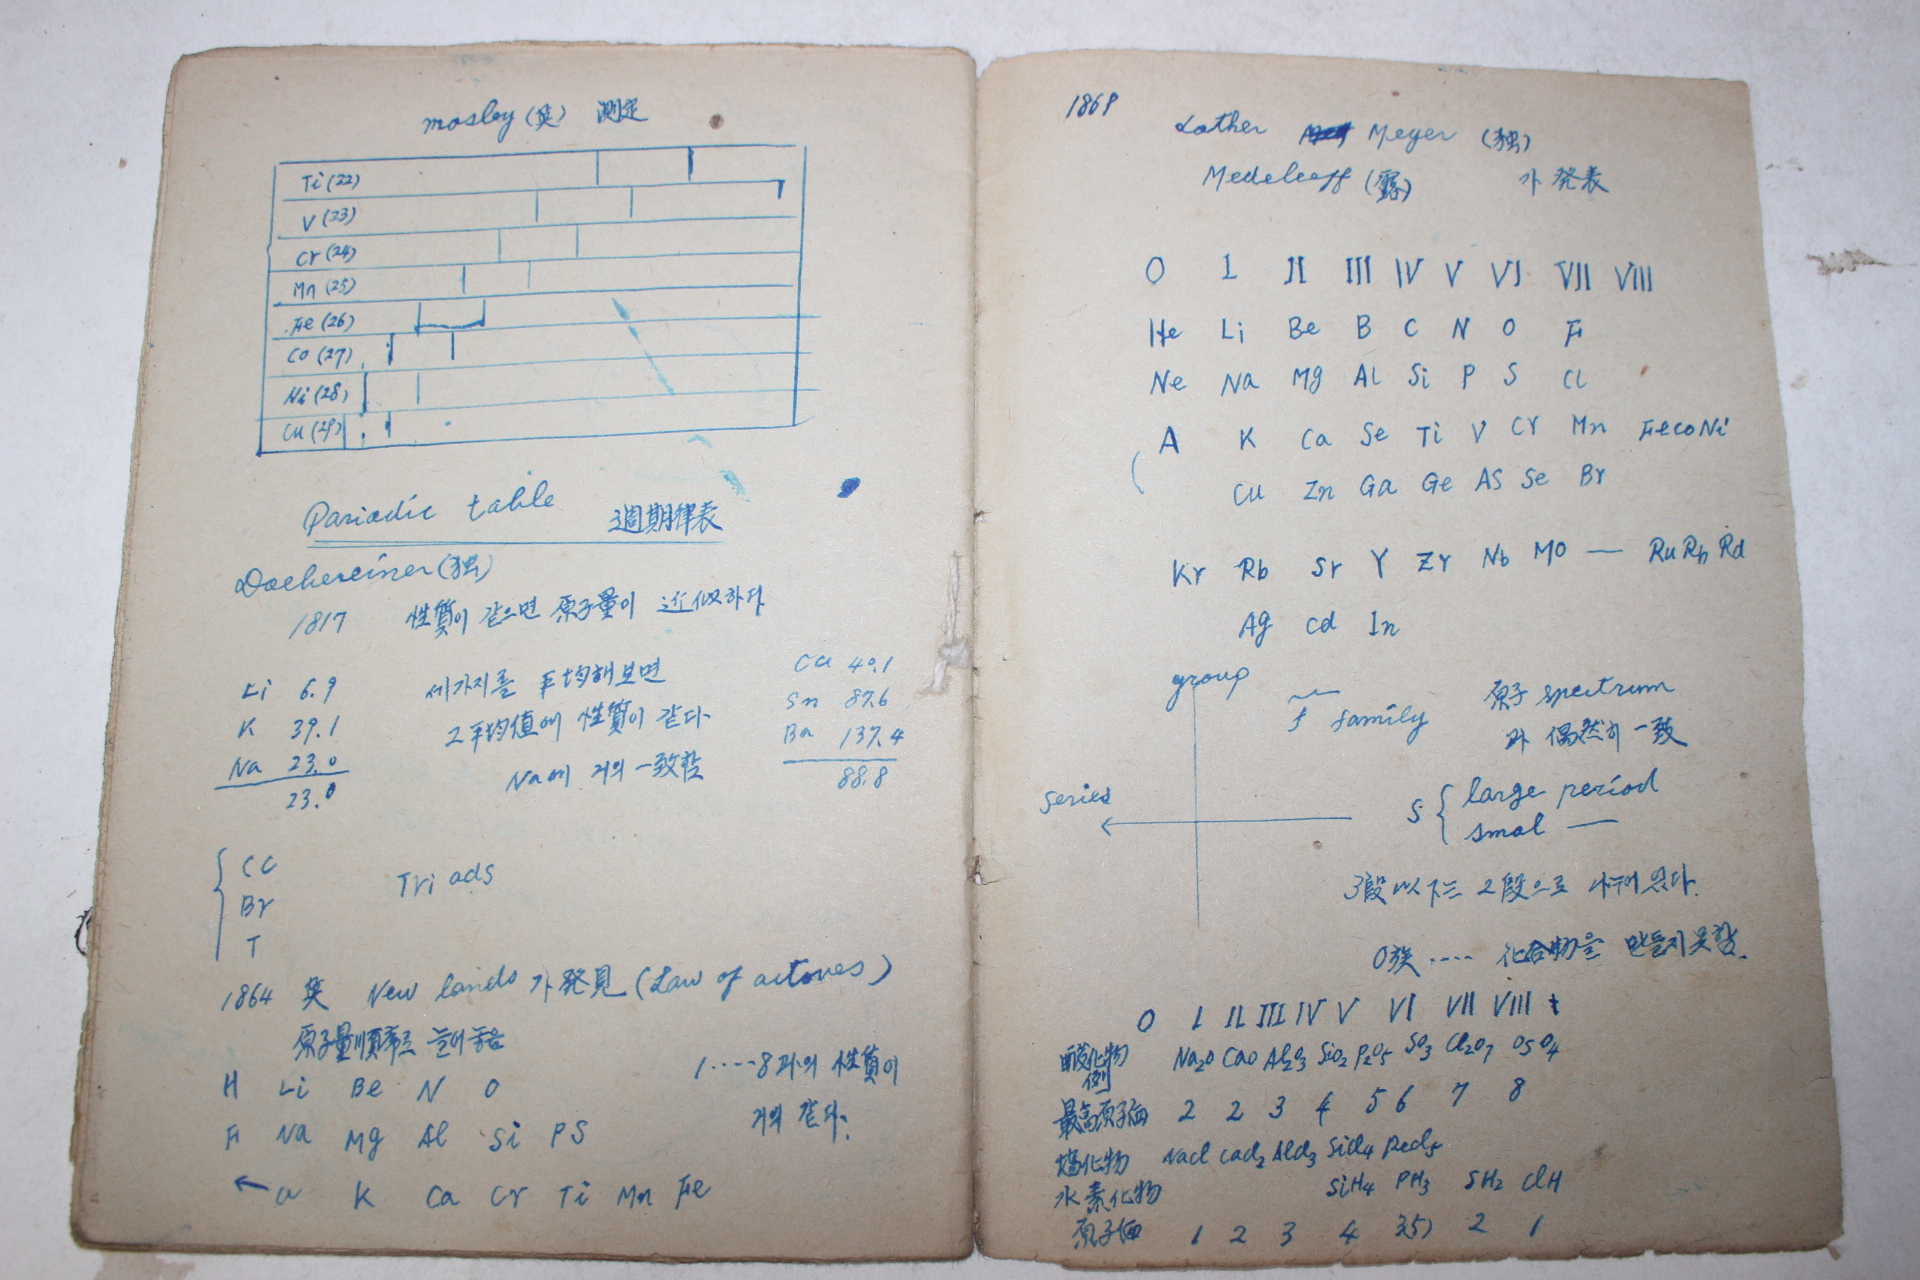 mosley (英) 測定
Ti (22)
V (23)
Cr (24)
Mn (25)
Fe (26)
Co (27)
Ni (28)
Cu (29)
Pariadic table 週期律表
Doehereiner (独)
1817 性質이 같으면 原子量이 近似하다
Li 6.9
K 39.1
Na 23.0
23.0
세가지를 平均해보면
그 平均値에 性質이 같다
Na에 거의 一致함
Ca 40.1
Sn 87.6
Ba 137.4
88.8
CC
Br
T
Tri ads
1864 英 New lands 가 発見 (Law of actoves)
原子量順序로 늘어놓음
H Li Be N O
F Na Mg Al Si P S
K Ca Cr Ti Mn Fe
1‥‥‥8 과의 性質이
거의 같다.
1869
Lother Meyer (独)
Medeleeff (露) 가 発表
O I II III IV V VI VII VIII
He Li Be B C N O F
Ne Na Mg Al Si P S Cl
A K Ca Se Ti V Cr Mn Fe Co Ni
Cu Zn Ga Ge AS Se Br
Kr Rb Sr Y Zr Nb MO — Ru Rh Rd
Ag Cd In
group
f family
原子 spectrum
과 偶然히 一致
series
S { large period
smal —
3段以下는 2段으로 나누어 있다.
O族 ‥‥ 化合物을 만들지못함.
O I II III IV V VI VII VIII
酸化物例 Na2O CaO Al2O3 SiO2 P2O5 SO3 Cl2O7 OSO4
最高原子価 2 2 3 4 5 6 7 8
塩化物 NaCl CaCl2 AlCl3 SiCl4
水素化物 SiH4 PH3 SH2 ClH
原子価 1 2 3 4 3(5) 2 1